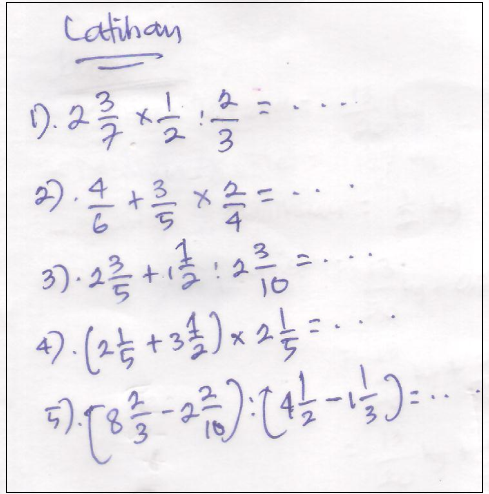 Latihan
1). 2 3/7 x 1/2 : 2/3 = ....
2). 4/6 + 3/5 x 2/4 = ....
3). 2 3/5 + 1 1/2 : 2 3/10 = ....
4). (2 1/5 + 3 1/2) x 2 1/5 = ....
5). (8 2/3 - 2 2/10) : (4 1/2 - 1 1/3) = ....